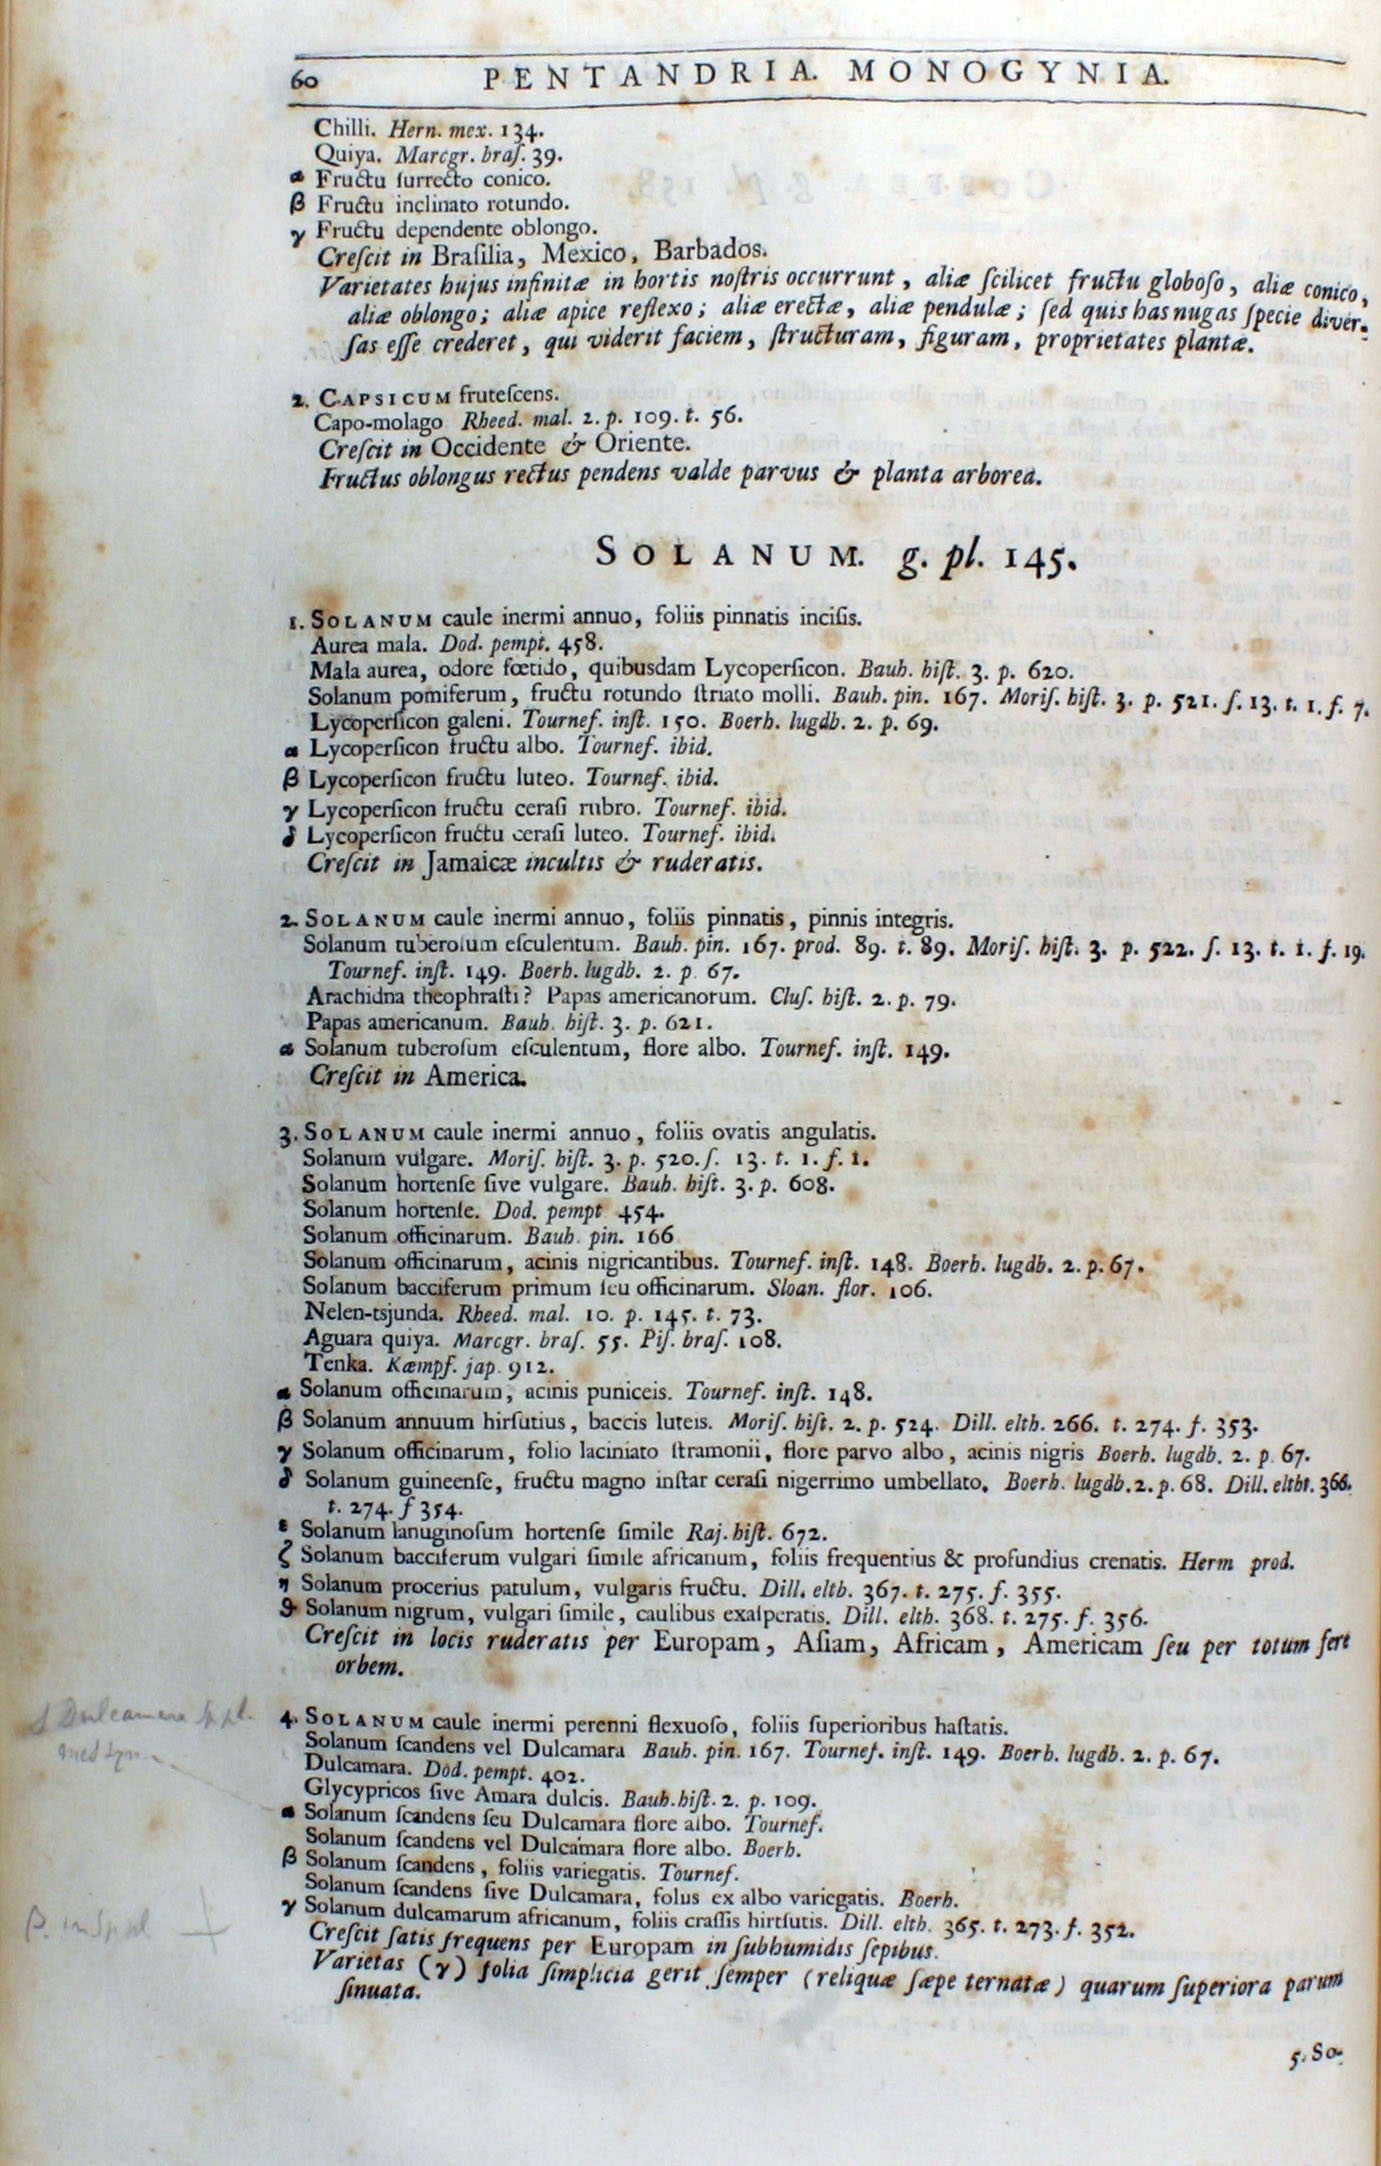 60 PENTANDRIA. MONOGYNIA.
Chilli. Hern. mex. 134.
Quiya. Marcgr. braſ. 39.
α Fructu ſurrecto conico.
β Fructu inclinato rotundo.
γ Fructu dependente oblongo.
Creſcit in Braſilia, Mexico, Barbados.
Varietates hujus infinitæ in hortis noſtris occurrunt, aliæ ſcilicet fructu globoſo, aliæ conico,
aliæ oblongo; aliæ apice reflexo; aliæ erectæ, aliæ pendulæ; ſed quis has nugas ſpecie diver-
ſas eſſe crederet, qui viderit faciem, ſtructuram, figuram, proprietates plantæ.
2. CAPSICUM fruteſcens.
Capo-molago Rheed. mal. 2. p. 109. t. 56.
Creſcit in Occidente & Oriente.
Fructus oblongus rectus pendens valde parvus & planta arborea.
SOLANUM. g. pl. 145.
1. SOLANUM caule inermi annuo, foliis pinnatis inciſis.
Aurea mala. Dod. pempt. 458.
Mala aurea, odore fœtido, quibusdam Lycoperſicon. Bauh. hiſt. 3. p. 620.
Solanum pomiferum, fructu rotundo ſtriato molli. Bauh. pin. 167. Moriſ. hiſt. 3. p. 521. ſ. 13. t. 1. f. 7.
Lycoperſicon galeni. Tournef. inſt. 150. Boerh. lugdb. 2. p. 69.
α Lycoperſicon fructu albo. Tournef. ibid.
β Lycoperſicon fructu luteo. Tournef. ibid.
γ Lycoperſicon fructu ceraſi rubro. Tournef. ibid.
δ Lycoperſicon fructu ceraſi luteo. Tournef. ibid.
Creſcit in Jamaicæ incultis & ruderatis.
2. SOLANUM caule inermi annuo, foliis pinnatis, pinnis integris.
Solanum tuberoſum eſculentum. Bauh. pin. 167. prod. 89. t. 89. Moriſ. hiſt. 3. p. 522. ſ. 13. t. 1. f. 19.
Tournef. inſt. 149. Boerh. lugdb. 2. p. 67.
Arachidna theophraſti? Papas americanorum. Cluſ. hiſt. 2. p. 79.
Papas americanum. Bauh. hiſt. 3. p. 621.
α Solanum tuberoſum eſculentum, flore albo. Tournef. inſt. 149.
Creſcit in America.
3. SOLANUM caule inermi annuo, foliis ovatis angulatis.
Solanum vulgare. Moriſ. hiſt. 3. p. 520. ſ. 13. t. 1. f. 1.
Solanum hortenſe ſive vulgare. Bauh. hiſt. 3. p. 608.
Solanum hortenſe. Dod. pempt 454.
Solanum officinarum. Bauh. pin. 166
Solanum officinarum, acinis nigricantibus. Tournef. inſt. 148. Boerh. lugdb. 2. p. 67.
Solanum bacciferum primum ſeu officinarum. Sloan. flor. 106.
Nelen-tsjunda. Rheed. mal. 10. p. 145. t. 73.
Aguara quiya. Marcgr. braſ. 55. Piſ. braſ. 108.
Tenka. Kæmpf. jap. 912.
α Solanum officinarum, acinis puniceis. Tournef. inſt. 148.
β Solanum annuum hirſutius, baccis luteis. Moriſ. hiſt. 2. p. 524. Dill. elth. 266. t. 274. f. 353.
γ Solanum officinarum, folio laciniato ſtramonii, flore parvo albo, acinis nigris Boerh. lugdb. 2. p. 67.
δ Solanum guineenſe, fructu magno inſtar ceraſi nigerrimo umbellato. Boerh. lugdb. 2. p. 68. Dill. eltht. 366.
t. 274. f 354.
ε Solanum lanuginoſum hortenſe ſimile Raj. hiſt. 672.
ζ Solanum bacciferum vulgari ſimile africanum, foliis frequentius & profundius crenatis. Herm prod.
η Solanum procerius patulum, vulgaris fructu. Dill. elth. 367. t. 275. f. 355.
ϑ Solanum nigrum, vulgari ſimile, caulibus exaſperatis. Dill. elth. 368. t. 275. f. 356.
Creſcit in locis ruderatis per Europam, Aſiam, Africam, Americam ſeu per totum fere
orbem.
4. SOLANUM caule inermi perenni flexuoſo, foliis ſuperioribus haſtatis.
Solanum ſcandens vel Dulcamara Bauh. pin. 167. Tournef. inſt. 149. Boerh. lugdb. 2. p. 67.
Dulcamara. Dod. pempt. 402.
Glycypricos ſive Amara dulcis. Bauh. hiſt. 2. p. 109.
α Solanum ſcandens ſeu Dulcamara flore albo. Tournef.
Solanum ſcandens vel Dulcamara flore albo. Boerh.
β Solanum ſcandens, foliis variegatis. Tournef.
Solanum ſcandens ſive Dulcamara, foliis ex albo variegatis. Boerh.
γ Solanum dulcamarum africanum, foliis craſſis hirſutis. Dill. elth. 365. t. 273. f. 352.
Creſcit ſatis frequens per Europam in ſubhumidis ſepibus.
Varietas (γ) folia ſimplicia gerit ſemper (reliquæ ſæpe ternatæ) quarum ſuperiora parum
ſinuata.
5. So-
Dulcamara
β. in Sp pl